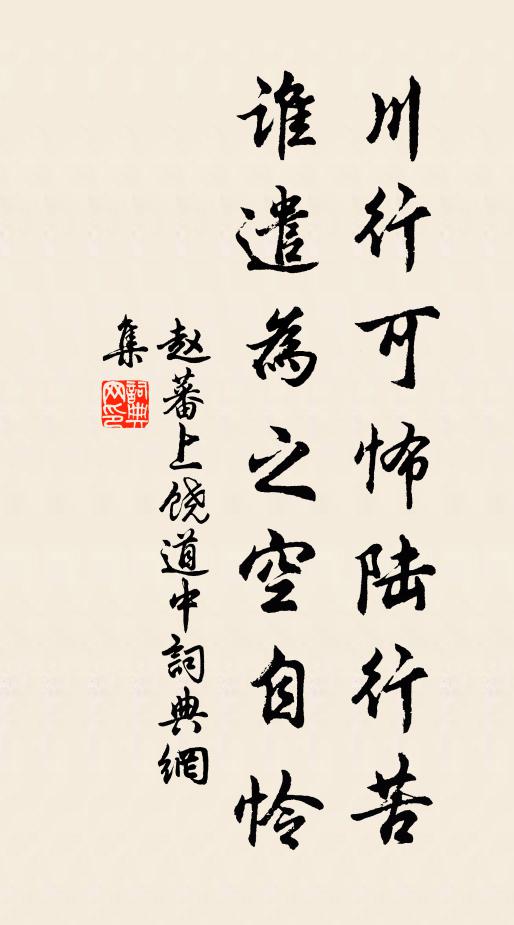 川行可怖陆行苦
谁遣為之空自怜
赵蕃上饶道中詞典網
集
詞典
网印